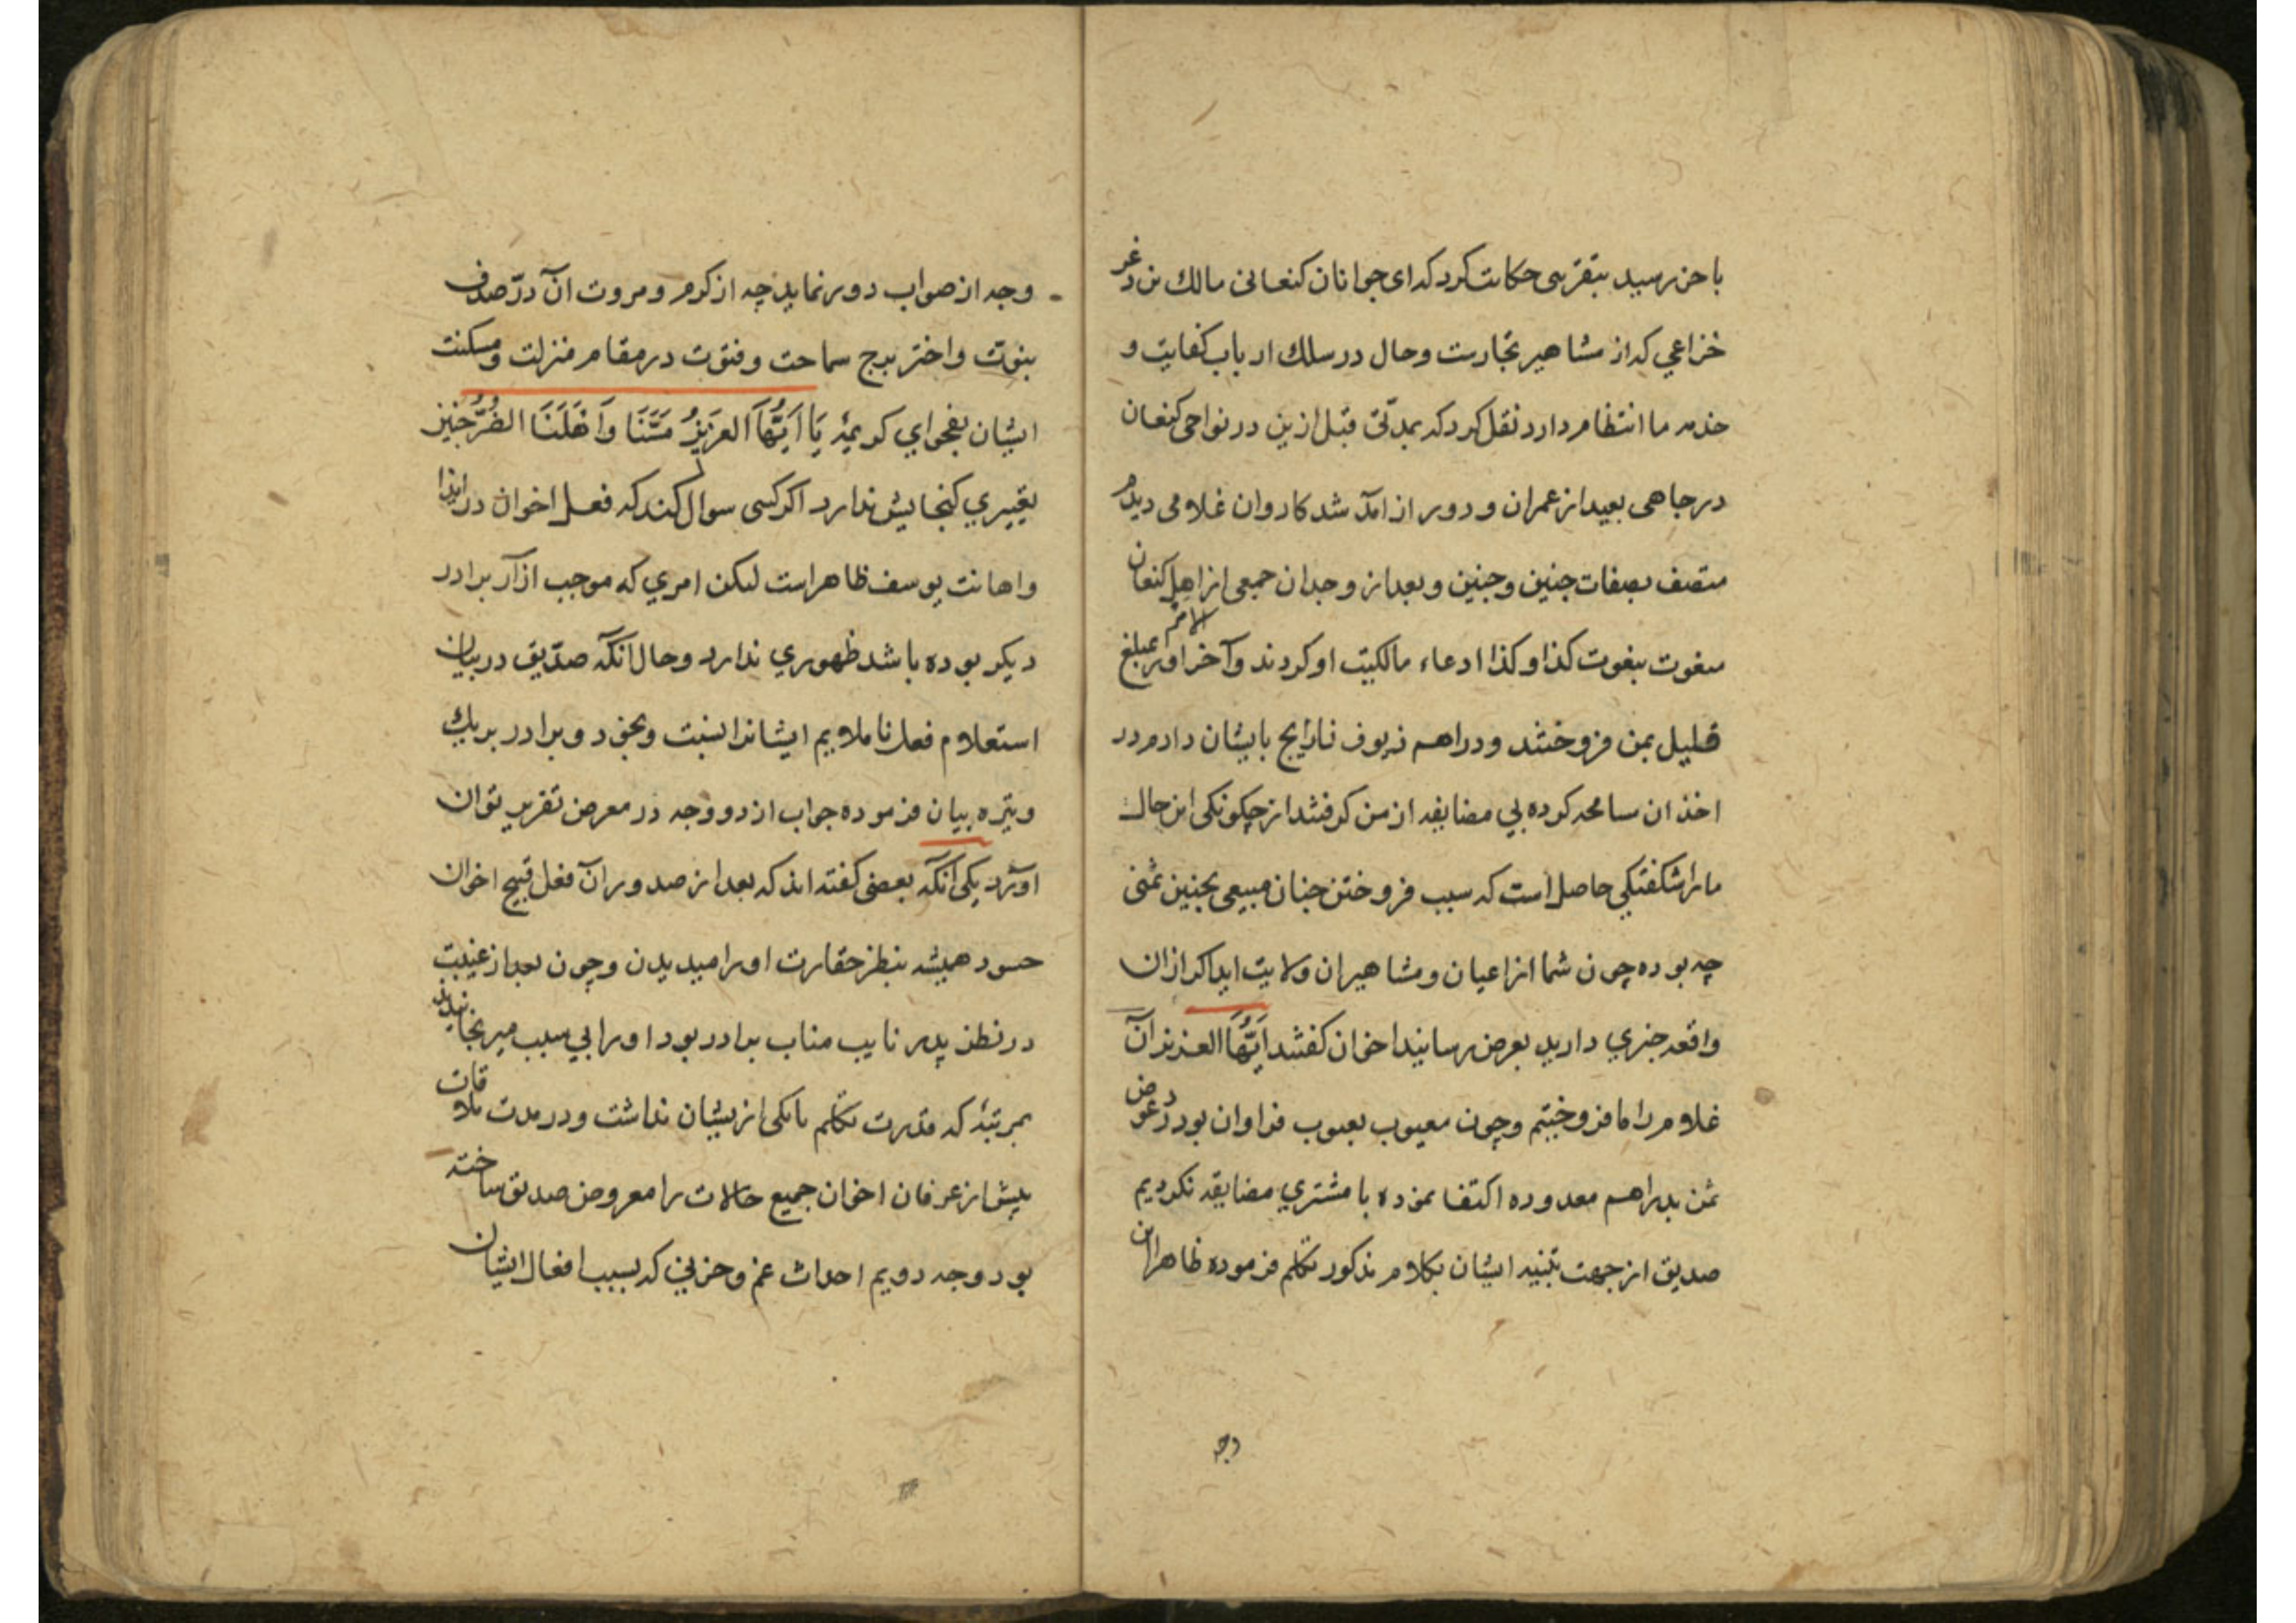 باخر رسید بتقربی حکایت کرد که ای جوانان کنعانی مالک بن دغر
خزاعی که از مشاهیر تجارست و حال در سلک ارباب کفایت و
خدم ما انتظام دارد نقل کرد که بمدتی قبل ازین در نواحی کنعان
در چاهی بعید از عمران و دور از آمد شد کاروان غلامی دیدم
متصف بصفات چنین و چنین و بعد از وجدان جمعی از اهل کنعان
بنعوت کذا و کذا ادعاء مالکیت او کردند و آخر الامر او را بمبلغ
قلیل بمن فروختند و دراهم زیوف نارایج بایشان دادم در
اخذ ان مسامحه کرده بی مضایقه از من کرفتند از چکونکی این حال
ما را شکفتکی حاصل است که سبب فروختن چنان مبیعی بچنین ثمنی
چه بوده چون شما از اعیان و مشاهیر ان ولایت اید اکر ازان
واقعه خبری دارید بعرض رسانید اخوان کفتند اَیُّهَا العزیز آن
غلام را ما فروختیم و چون معیوب بعیوب فراوان بود در عوض
ثمن بدراهم معدوده اکتفا نموده با مشتری مضایقه نکردیم
صدیق از جهت تنبیه ایشان بکلام مذکور تکلم فرموده ظاهرا این
وجه
وجه از صواب دور نماید چه از کرم و مروت آن درّ صدف
نبوّت و اختر برج سماحت و فتوّت در مقام منزلت و مسکنت
ایشان بفحوای کریمهٔ یَا اَیُّهَا العَزِیزُ مَسَّنَا وَاَهْلَنَا الضُّرُّ چنین
تعییری کنجایش ندارد اکر کسی سوال کند که فعل اخوان در ایذا
و اهانت یوسف ظاهر است لیکن امری که موجب ازار برادر
دیکر بوده باشد ظهوری ندارد و حال آنکه صدّیق در بیان
استعلام فعل نا ملایم ایشانرا نسبت بخود و برادر بر یک
وتیره بیان فرموده جواب از دو وجه در معرض تقریر توان
اورد یکی آنکه بعضی کفته اند که بعد از صدور آن فعل قبیح اخوان
حسود همیشه بنظر حقارت او را میدیدن و چون بعد از غیبت
در نظر پدر نایب مناب برادر بود او را بی سبب میرنجانیدند
بمرتبهٔ که قدرت تکلم با یکی از یشان نداشت و در مدت ملاقات
پیش از عرفان اخوان جمیع حالات را معروض صدیق ساخته
بود وجه دویم احداث غم و حزنی که بسبب افعال ایشان